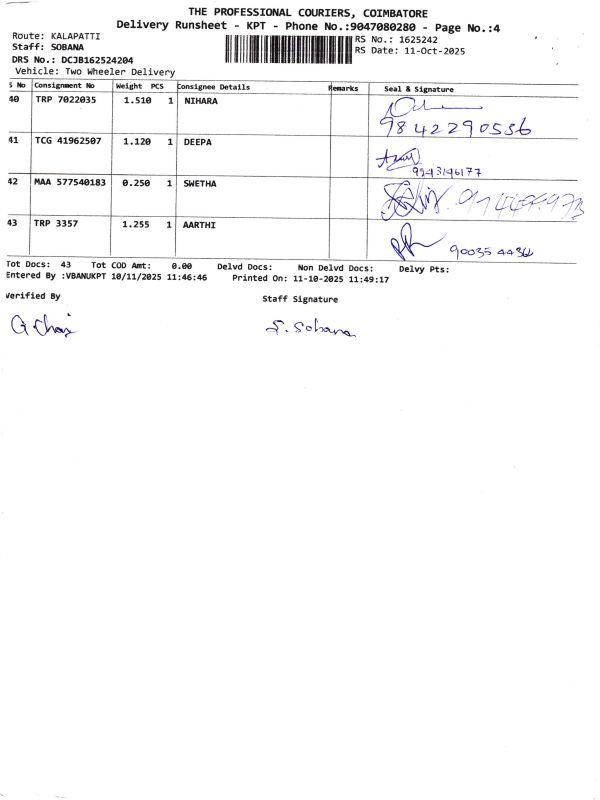 THE PROFESSIONAL COURIERS, COIMBATORE
Delivery Runsheet - KPT - Phone No.:9047080280 - Page No.:4
Route: KALAPATTI
RS No.: 1625242
Staff: SOBANA
RS Date: 11-Oct-2025
DRS No.: DCJB162524204
Vehicle: Two Wheeler Delivery
S No Consignment No Weight PCS Consignee Details Remarks Seal & Signature
40 TRP 7022035 1.510 1 NIHARA
9842290556
41 TCG 41962507 1.120 1 DEEPA
9943146177
42 MAA 577540183 0.250 1 SWETHA
43 TRP 3357 1.255 1 AARTHI
90035 4436
Tot Docs: 43 Tot COD Amt: 0.00 Delvd Docs: Non Delvd Docs: Delvy Pts:
Entered By :VBANUKPT 10/11/2025 11:46:46 Printed On: 11-10-2025 11:49:17
Verified By
Staff Signature
S. Sobana